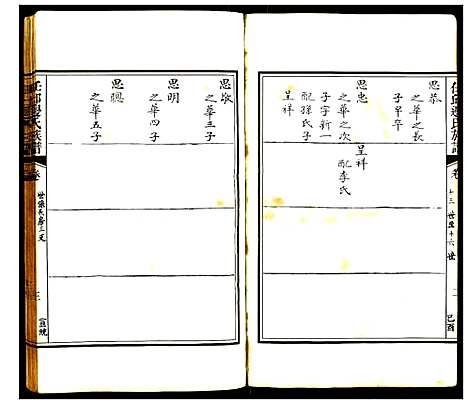 思恭
之華之長
子早卒
思忠
之華之次
子字新一
配孫氏子
呈祥
呈祥
配李氏
思敬
之華三子
思明
之華四子
思聰
之華五子
任邱邊氏族譜
卷
十三世至十六世
己酉
任邱邊氏族譜
卷
世孫長房三支
宣統